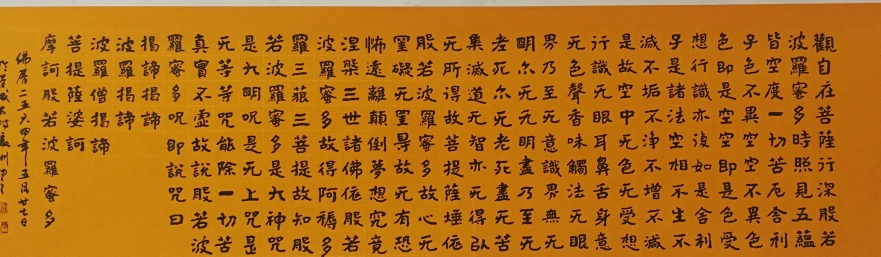 觀自在菩薩行深般若
波羅蜜多時照見五蘊
皆空度一切苦厄舍利
子色不異空空不異色
色即是空空即是色受
想行識亦復如是舍利
子是諸法空相不生不
滅不垢不淨不增不減
是故空中无色无受想
行識无眼耳鼻舌身意
无色聲香味觸法无眼
界乃至无意識界無无
明尒无无明盡乃至无
老死尒无老死盡无苦
集滅道无智亦无得以
无所得故菩提薩埵依
般若波羅蜜多故心无
罣礙无罣㝵故无有恐
怖遠離顛倒夢想究竟
涅槃三世諸佛依般若
波羅蜜多故得阿耨多
羅三藐三菩提故知般
若波羅蜜多是大神咒
是大明咒是无上咒是
无等等咒能除一切苦
真實不虛故說般若波
羅蜜多咒即說咒曰
揭諦揭諦
波羅揭諦
波羅僧揭諦
菩提薩婆訶
摩訶般若波羅蜜多
佛曆二五六四年五月廿七日